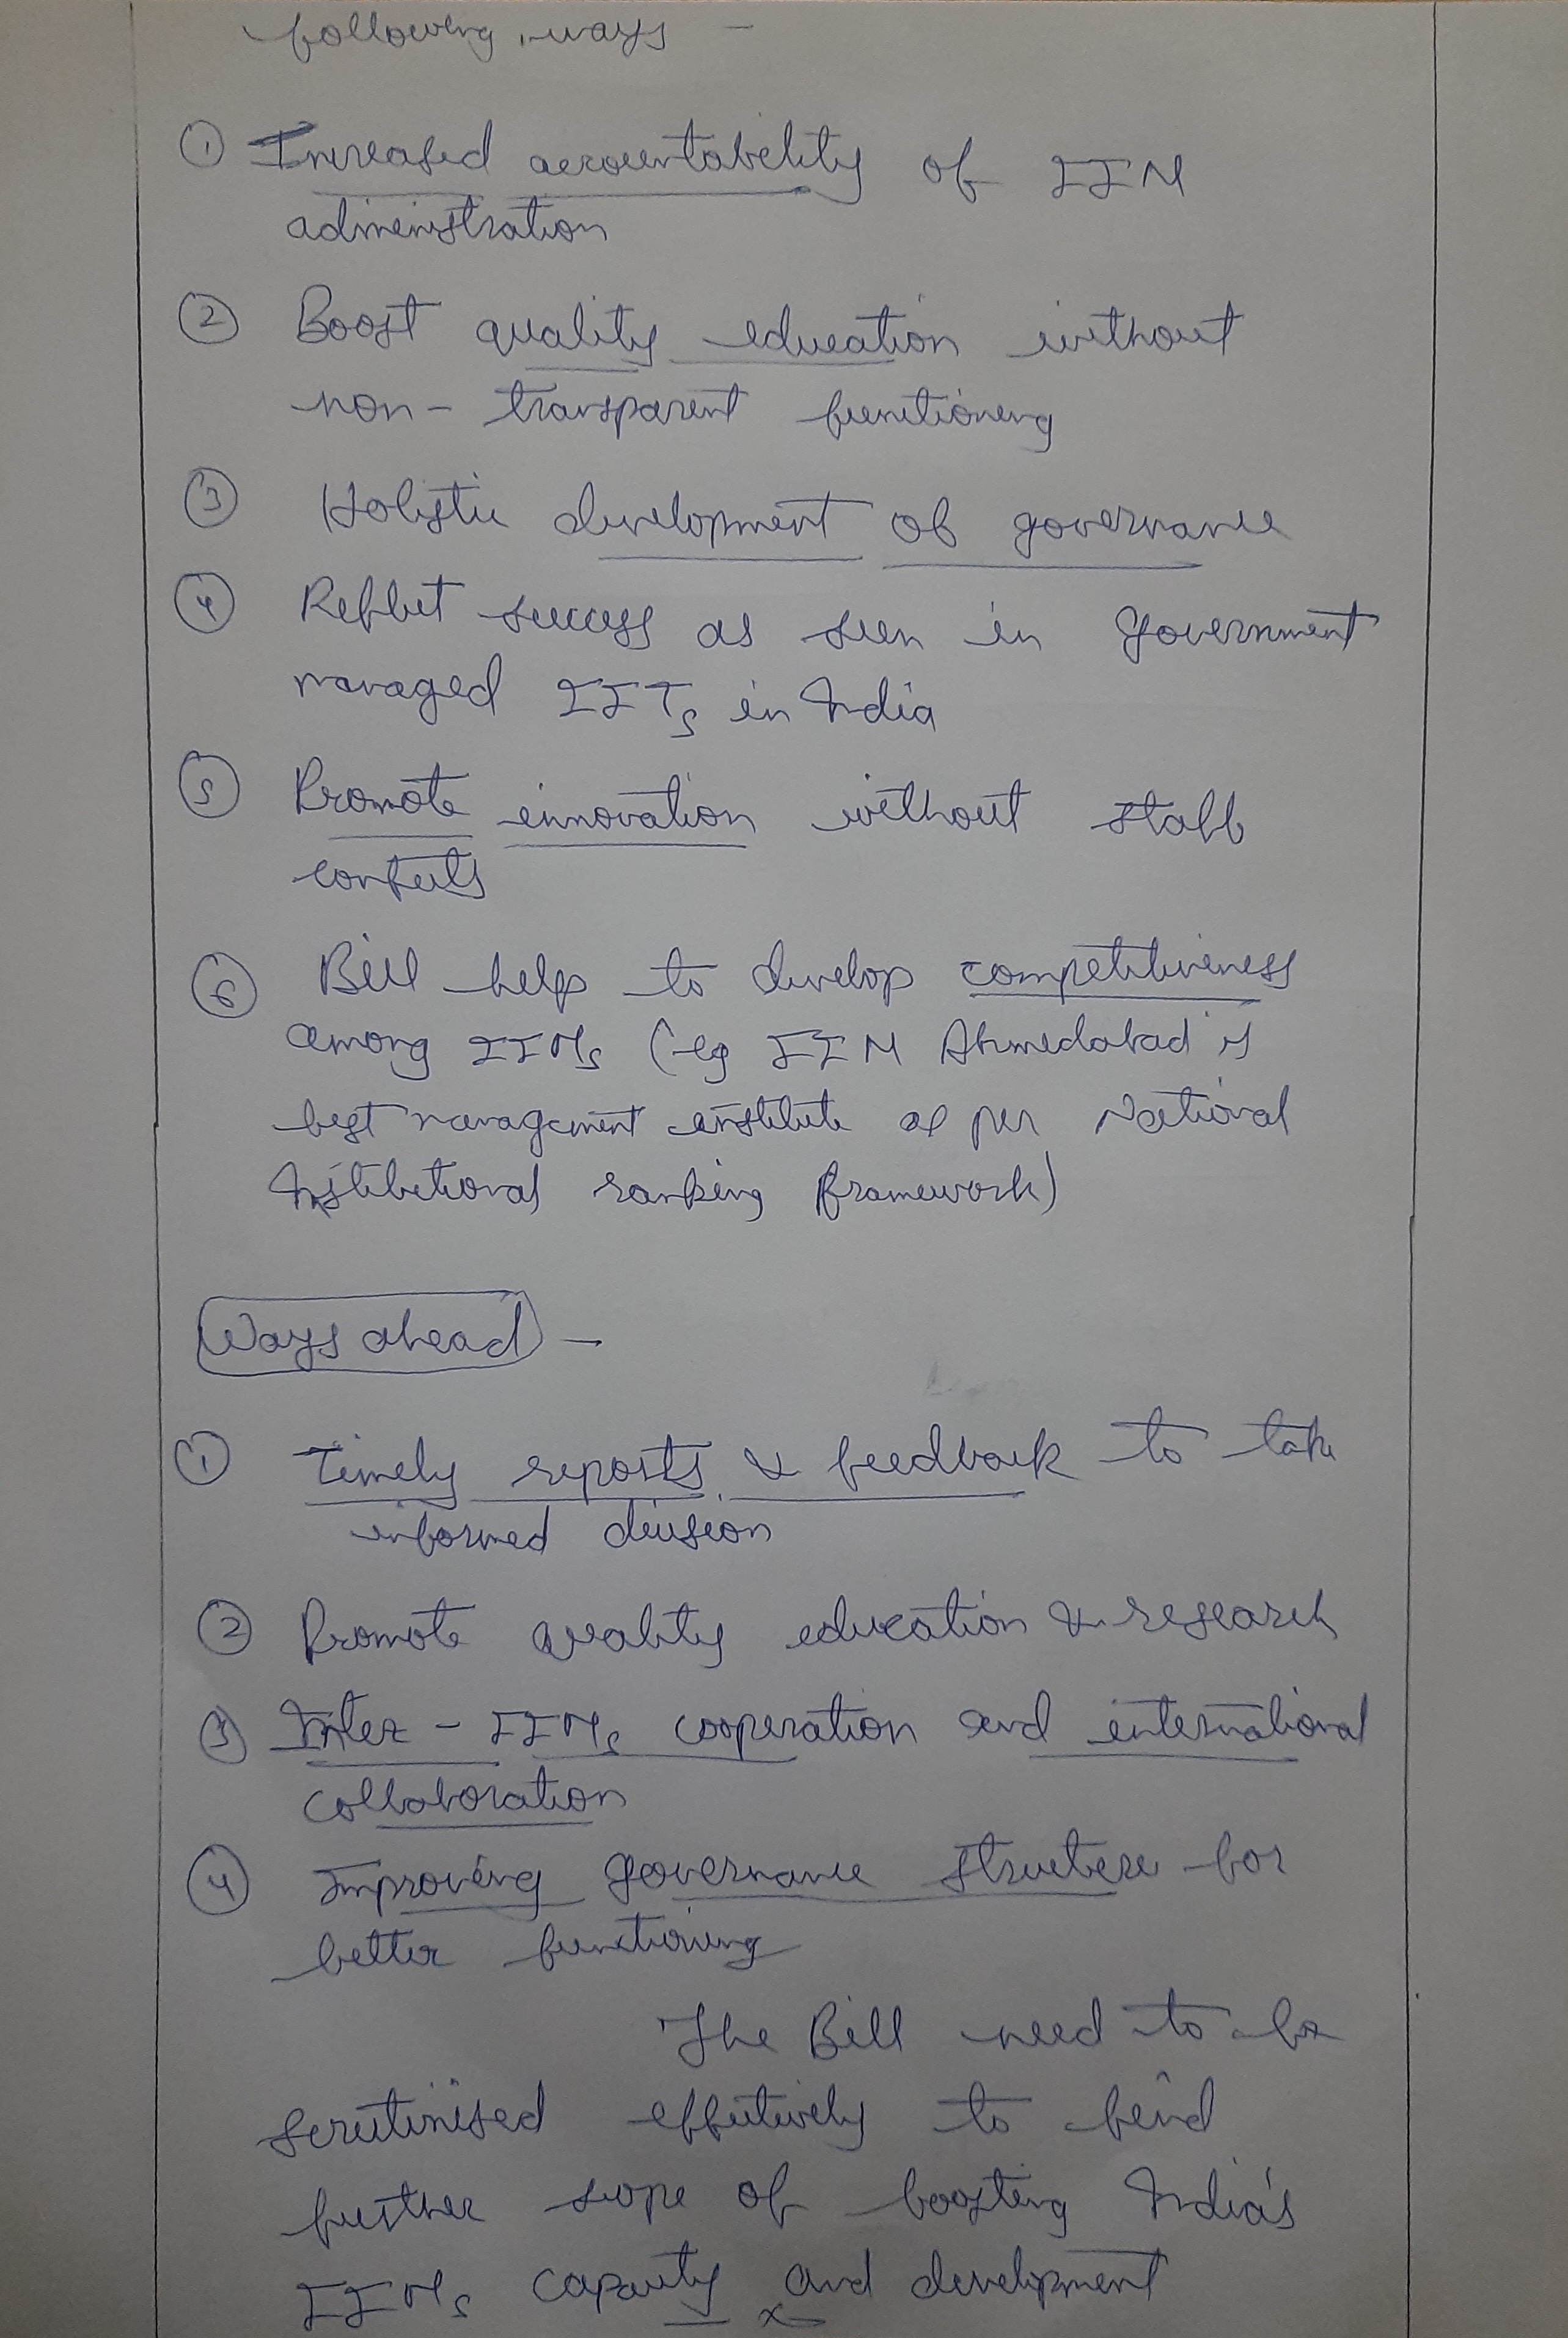 following ways -
① Increased accountability of IIM
administration
② Boost quality education without
non- transparent functioning
③ Holistic development of governance
④ Reflect success as seen in Government
managed IITs in India
⑤ Promote innovation without staff
⑥ Bill help to develop competitiveness
among IIMs (eg IIM Ahmedabad is
best management institute as per National
Institutional ranking framework)
Ways ahead -
① Timely reports & feedback to take
informed decision
② Promote quality education & research
③ Inter - IIMs cooperation and international
collaboration
④ Improving governance structure for
better functioning
The Bill need to be
scrutinised effectively to find
further scope of boosting India's
IIMs capacity and development